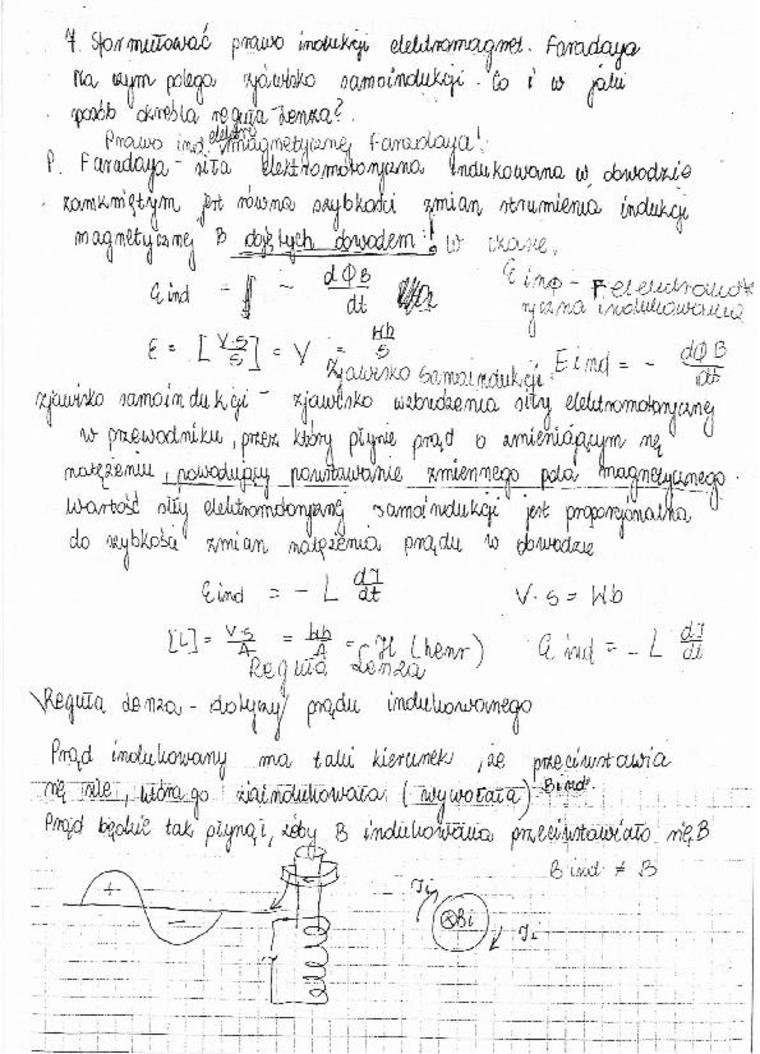 7. Sformułować prawo indukcji elektromagnet. Faradaya
Na czym polega zjawisko samoindukcji. Co i w jaki
sposób określa reguła Lenza?
Prawo ind. elektromagnetycznej Faradaya!
P. Faradaya - siła elektromotoryczna indukowana w obwodzie
zamkniętym jest równa szybkości zmian strumienia indukcji
magnetycznej B objętych obwodem! w czasie.
ε ind = - dΦB/dt
ε ind - F. elektromotoryczna indukowania
ε = [V·s/s] = V = Wb/s
εind = - dΦB/dt
Zjawisko samoindukcji:
zjawisko samoindukcji - zjawisko wzbudzenia siły elektromotorycznej
w przewodniku, przez który płynie prąd o zmieniającym się
natężeniu, powodujący powstawanie zmiennego pola magnetycznego.
Wartość siły elektromotorycznej samoindukcji jest proporcjonalna
do szybkości zmian natężenia prądu w obwodzie
εind = - L dI/dt V·s = Wb
[L] = V·s/A = Wb/A = H (henr) ε ind = - L dI/dt
Reguła Lenza
Reguła Lenza - dotyczy prądu indukowanego
Prąd indukowany ma taki kierunek, że przeciwstawia
się sile, która go zaindukowała (wywołała) Bind.
Prąd będzie tak płynął, żeby B indukowana przeciwstawiało się B
B ind ≠ B
+
-
Ji
⊗Bi
Ji